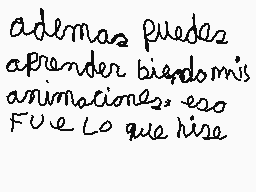 ademas puedes
aprender biendo mis
animaciones. eso
FUe Lo que hise